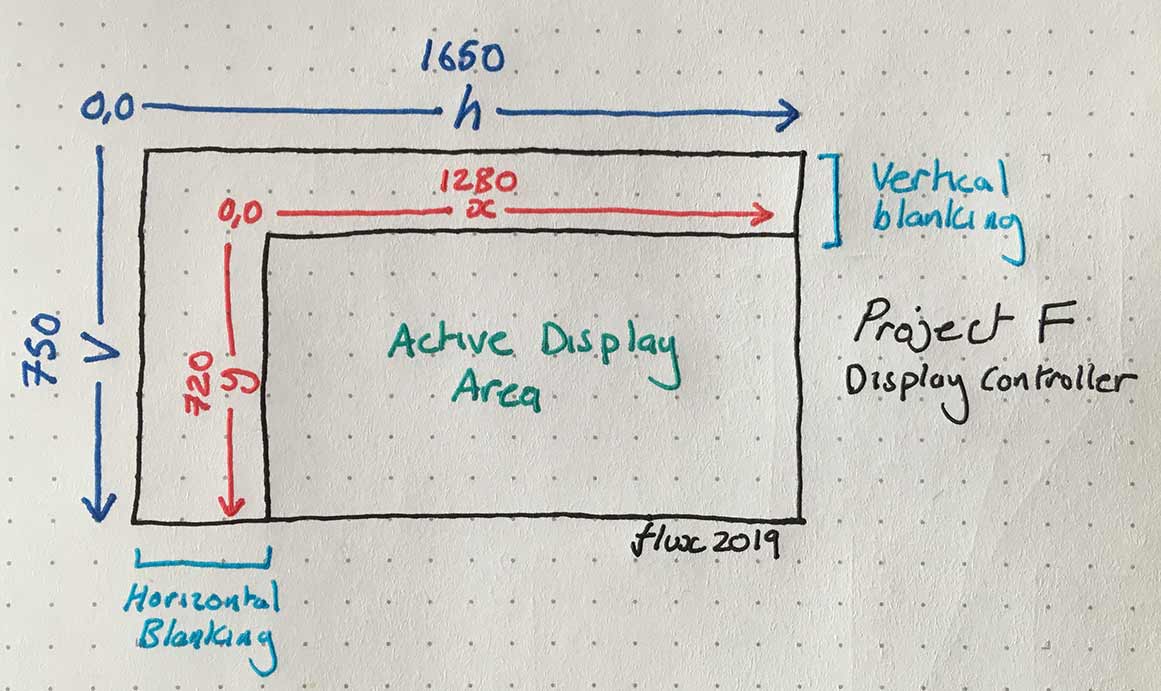 1650
0,0
h
1280
0,0
x
Vertical
blanking
750
V
720
y
Active Display
Area
Project F
Display Controller
flux 2019
Horizontal
Blanking